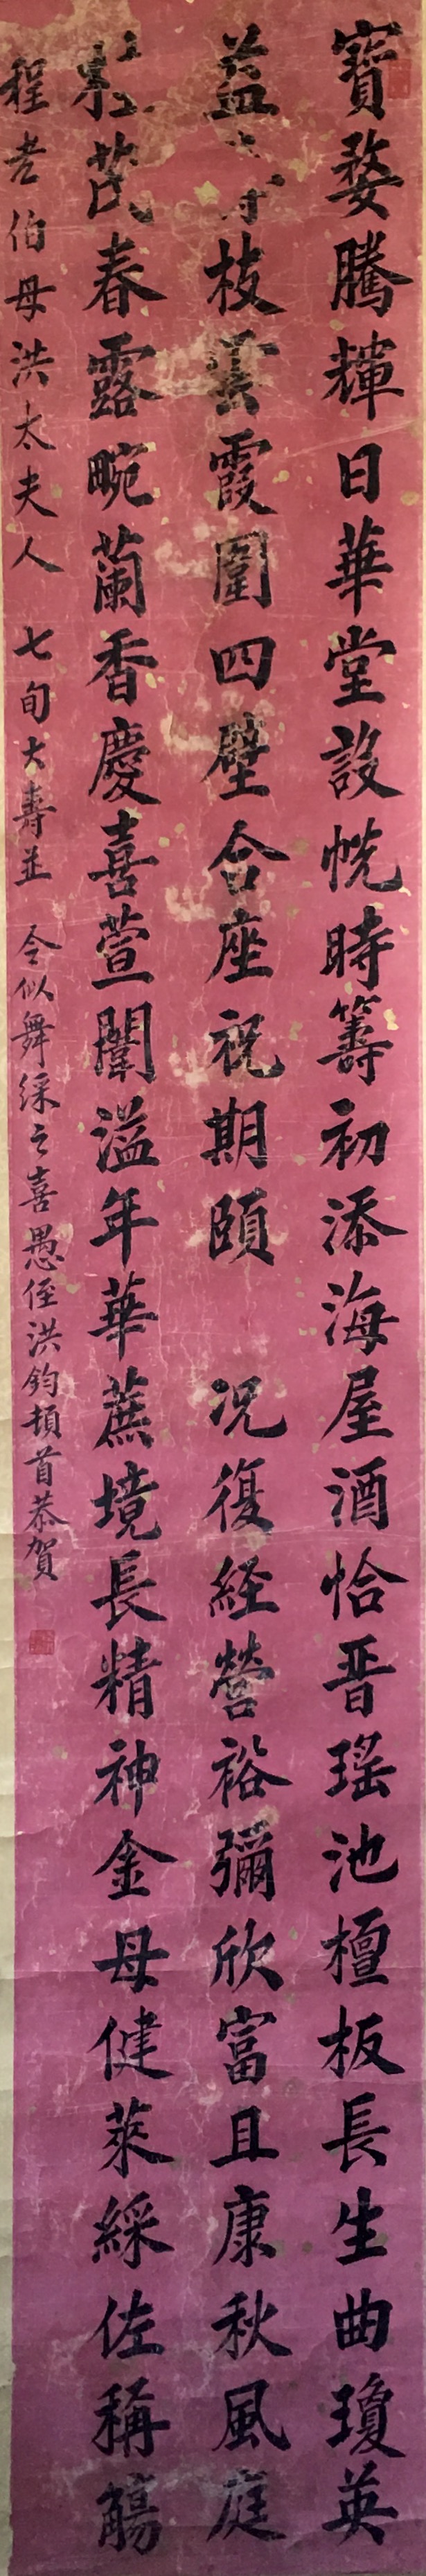 寶婺騰輝日華堂設帨時籌初添海屋酒恰晋瑤池檀板長生曲瓊英
益壽枝雲霞圍四壁合座祝期頤 况復經營裕彌欣富且康秋風庭
桂茂春露畹蘭香慶喜萱闈溢年華蔗境長精神金母健萊綵佐稱觴
程老伯母洪太夫人 七旬大壽並 令似舞綵之喜愚侄洪鈞頓首恭賀